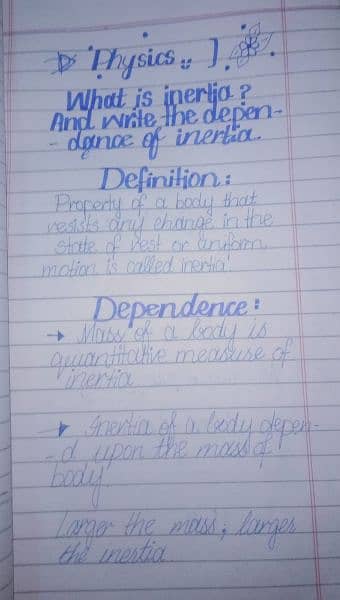 Physics
What is inertia?
And write the depen-
- dance of inertia.
Definition:
Property of a body that
resists any change in the
state of rest or uniform
motion is called inertia'
Dependence:
→ Mass of a body is
quantitative measure of
inertia
Inertia of a body depen-
- d upon the mass of
body.
Larger the mass; larger
the inertia.